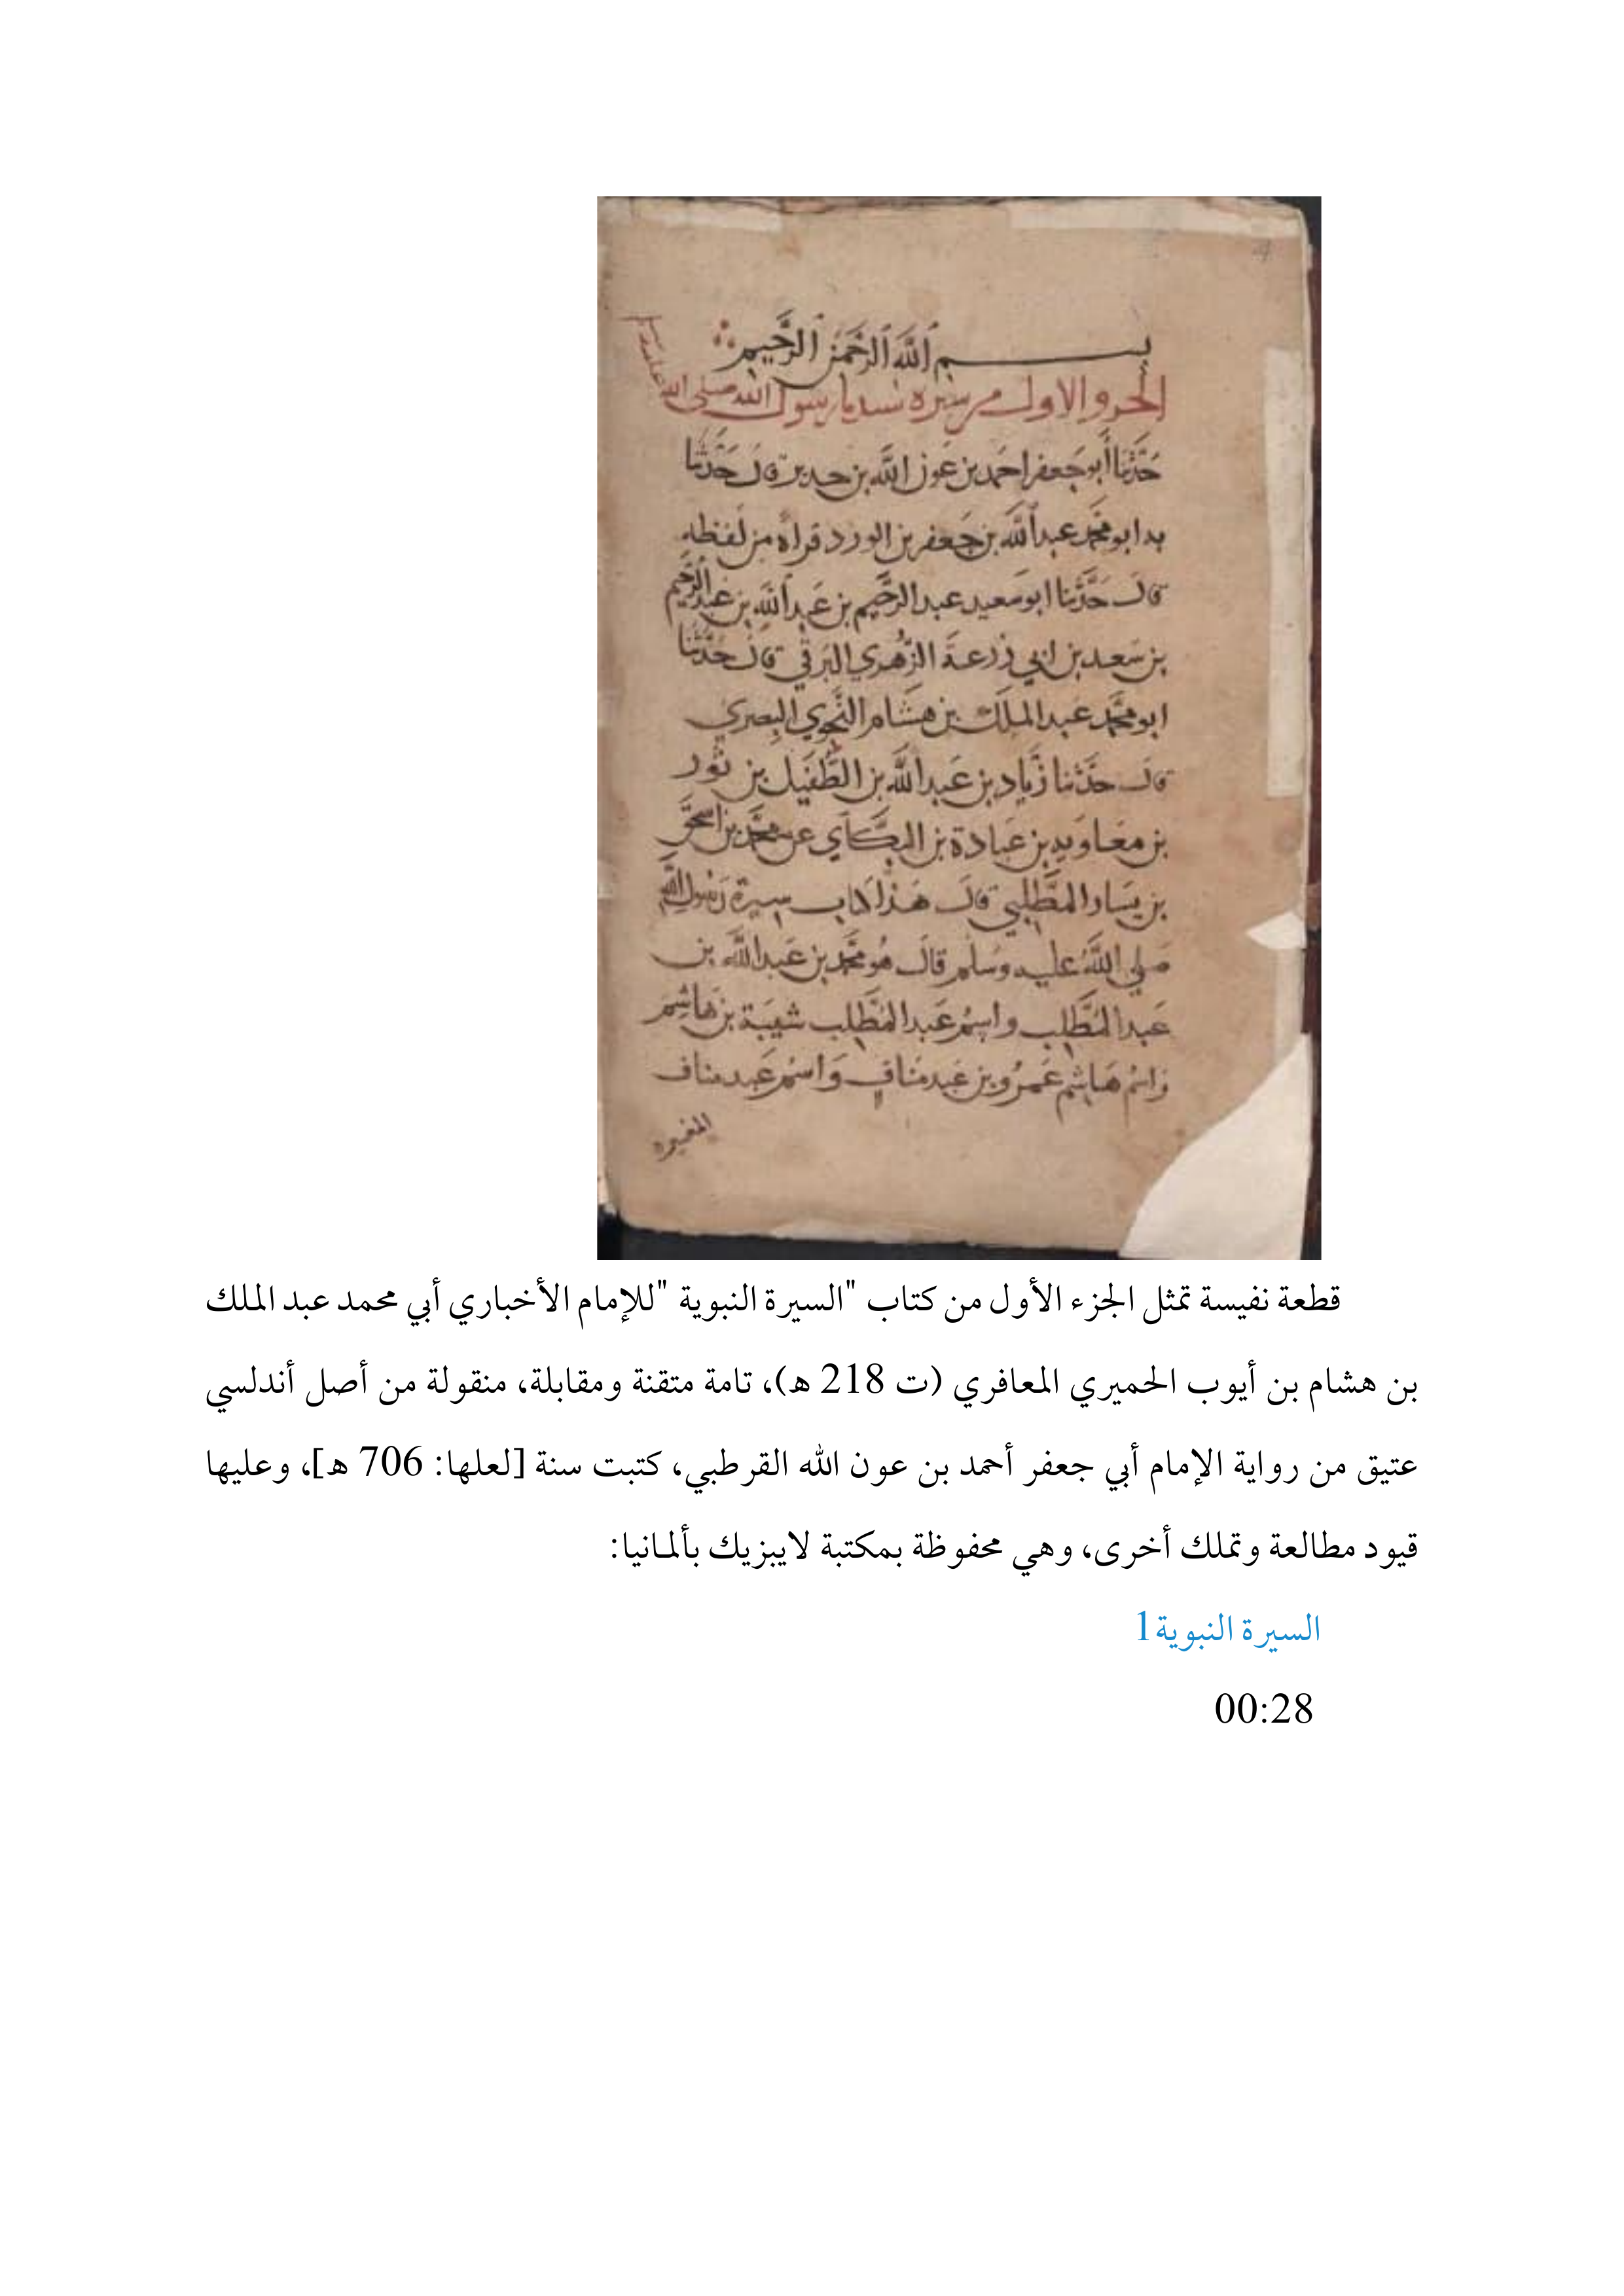 بسم الله الرحمن الرحيم
الجزو الاول من سيرة سيدنا رسول الله صلى الله
عليه وسلم
حَدَّثنَا أبو جَعفر احمَد بن عَون اللَّه بن حدير قال حَدَّثنا
به ابو محمَّد عبد اللَّه بن جَعفر بن الورد قراةً من لَفظه
قال حَدَّثنا ابو سَعيد عبد الرَّحيم بن عَبد اللَّه بن عبد الرَّحيم
بن سَعيد بن ابي زرعة الزُّهري البَرقي قال حَدَّثنا
ابو محمَّد عبد الملك بن هشَام النَّحوي البصري
قال حدَّثنا زيَاد بن عَبد اللَّه بن الطُّفَيل بن ثور
بن معَاويه بن عبَادة بن البكَّاي عن محمَّد بن اسحَق
بن يسَار المطَّلبي قال هَذا كتاب سيرة رسُول اللَّه
صَلى اللَّهُ عليه وسَلم قالَ هُو محمَّد بن عَبد اللَّه بن
عَبد المُطَّلب واسمُ عَبد المُطَّلب شَيبَة بن هَاشِم
وَاسْمُ هَاشِم عَمرُو بن عَبد مَناف وَاسْمُ عَبد مناف
المغيره
قطعة نفيسة تمثل الجزء الأول من كتاب "السيرة النبوية "للإمام الأخباري أبي محمد عبد الملك
بن هشام بن أيوب الحميري المعافري (ت 218 هـ)، تامة متقنة ومقابلة، منقولة من أصل أندلسي
عتيق من رواية الإمام أبي جعفر أحمد بن عون الله القرطبي، كتبت سنة [لعلها: 706 هـ]، وعليها
قيود مطالعة وتملك أخرى، وهي محفوظة بمكتبة لايبزيك بألمانيا:
السيرة النبوية1
00:28